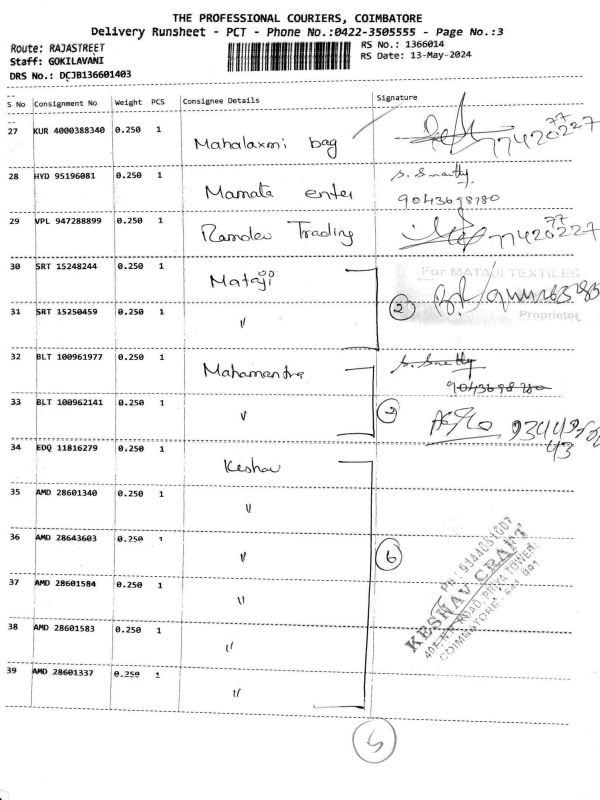 THE PROFESSIONAL COURIERS, COIMBATORE
Delivery Runsheet - PCT - Phone No.:0422-3505555 - Page No.:3
Route: RAJASTREET
RS No.: 1366014
Staff: GOKILAVANI
RS Date: 13-May-2024
DRS No.: DCJB136601403
S No Consignment No Weight PCS Consignee Details Signature
27 KUR 4000388340 0.250 1 Mahalaxmi bag 7742022777
28 HYD 95196081 0.250 1 Mamata enter S. Smathy
9043698780
29 VPL 947288899 0.250 1 Ramdev Trading 7742022777
30 SRT 15248244 0.250 1 Mataji For MATAJI TEXTILES
31 SRT 15250459 0.250 1 〃 2
Proprietor
32 BLT 100961977 0.250 1 Mahamantra S. Smathy
9043698780
33 BLT 100962141 0.250 1 〃 2
34 EDQ 11816279 0.250 1 Keshav
35 AMD 28601340 0.250 1 〃
36 AMD 28643603 0.250 1 〃 6
37 AMD 28601584 0.250 1 〃
38 AMD 28601583 0.250 1 〃
39 AMD 28601337 0.250 1 〃
Ph : 9344051007
KESHAV CRAFT
COIMBATORE - 641 001
5